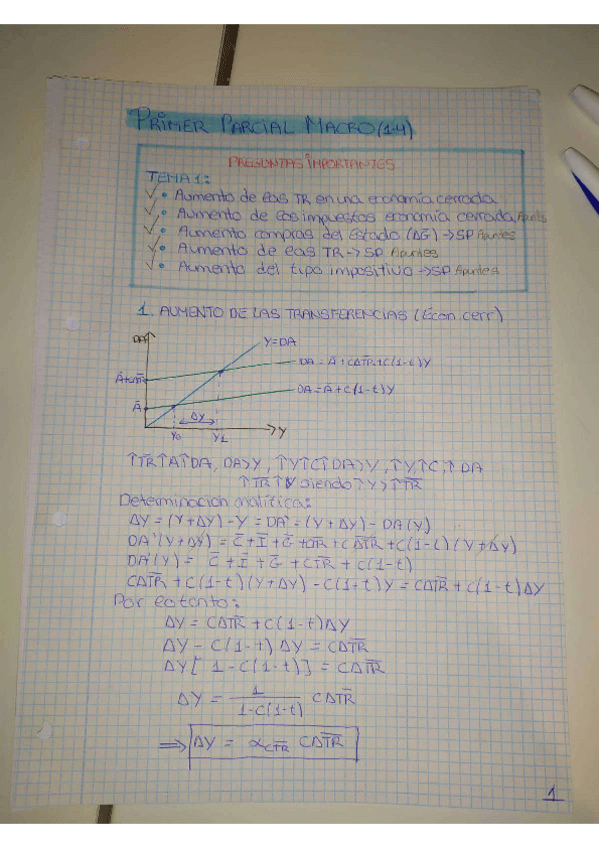 PRIMER PARCIAL MACRO (1-4)
PREGUNTAS IMPORTANTES
TEMA 1:
✓• Aumento de las TR en una economía cerrada
✓• Aumento de los impuestos economía cerrada Apnts
✓• Aumento compras del Estado (ΔG̅) → SP Apuntes
✓• Aumento de las TR → SP Apuntes
✓• Aumento del tipo impositivo → SP Apuntes
1. AUMENTO DE LAS TRANSFERENCIAS (Econ. cerr)
DA
Y=DA
DA = A̅ + CΔT̅R̅ + C(1-t)Y
DA = A̅ + C(1-t)Y
A̅
ΔY
Y0 Y1 Y
↑T̅R̅ ↑A ↑DA, DA>Y, ↑Y ↑C ↑DA>Y, ↑Y, ↑C, ↑DA
↑T̅R̅ ↑Y siendo ↑Y > ↑T̅R̅
Determinación analítica:
ΔY = (Y+ΔY) - Y = DA' = (Y+ΔY) - DA(Y)
DA'(Y+ΔY) = C̅ + I̅ + G̅ + CT̅R̅ + CΔT̅R̅ + C(1-t)(Y+ΔY)
DA'(Y) = C̅ + I̅ + G̅ + CT̅R̅ + C(1-t)
CΔT̅R̅ + C(1-t)(Y+ΔY) - C(1-t)Y = CΔT̅R̅ + C(1-t)ΔY
Por lo tanto:
ΔY = CΔT̅R̅ + C(1-t)ΔY
ΔY - C(1-t)ΔY = CΔT̅R̅
ΔY[1-C(1-t)] = CΔT̅R̅
ΔY = 1/1-C(1-t) CΔT̅R̅
⇒ ΔY = αCT̅R̅ CΔT̅R̅
1